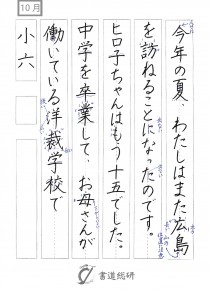 10月
今年の夏、わたしはまた広島
を訪ねることになったのです。
ヒロ子ちゃんはもう十五でした。
中学を卒業して、お母さんが
働いている洋裁学校で
小六
書道総研